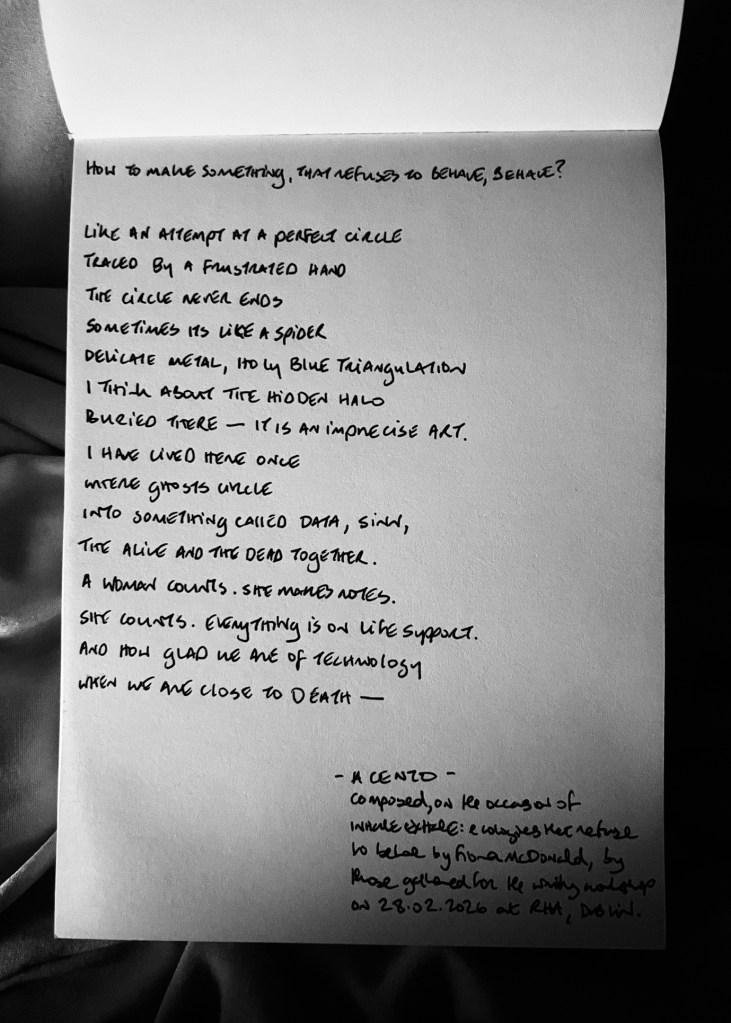 HOW TO MAKE SOMETHING, THAT REFUSES TO BEHAVE, BEHAVE?
LIKE AN ATTEMPT AT A PERFECT CIRCLE
TRACED BY A FRUSTRATED HAND
THE CIRCLE NEVER ENDS
SOMETIMES ITS LIKE A SPIDER
DELICATE METAL, HOLY BLUE TRIANGULATION
I THINK ABOUT THE HIDDEN HALO
BURIED THERE — IT IS AN IMPRECISE ART.
I HAVE LIVED HERE ONCE
WHERE GHOSTS CIRCLE
INTO SOMETHING CALLED DATA, SINK,
THE ALIVE AND THE DEAD TOGETHER.
A WOMAN COUNTS. SHE MAKES NOTES.
SHE COUNTS. EVERYTHING IS ON LIFE SUPPORT.
AND HOW GLAD WE ARE OF TECHNOLOGY
WHEN WE ARE CLOSE TO DEATH —
- A CENTO -
composed, on the occasion of
INHALE EXHALE: ecologies that refuse
to behave by Fiona McDonald, by
those gathered for the writing workshop
on 28.02.2026 at RHA, Dublin.